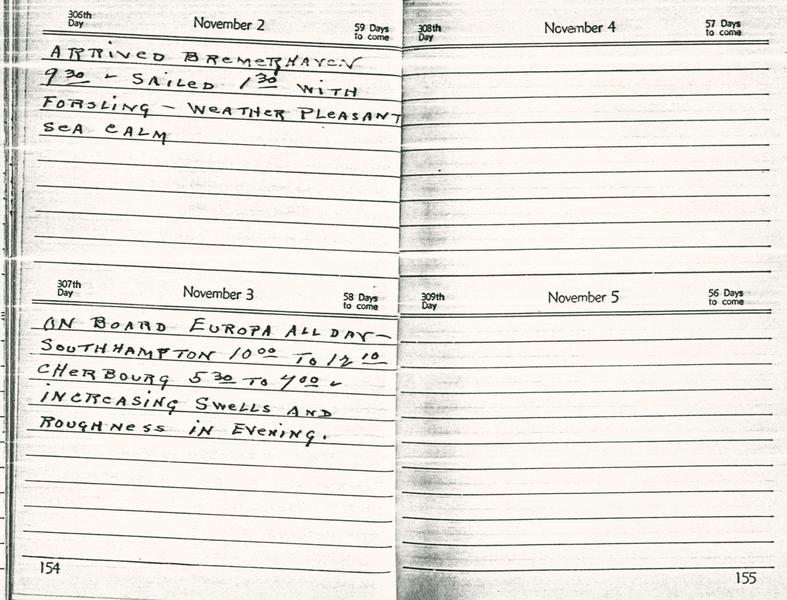 306th Day November 2 59 Days to come
ARRIVED BREMERHAVEN
9 30 - SAILED 1 30 WITH
FORSLING - WEATHER PLEASANT
SEA CALM
307th Day November 3 58 Days to come
ON BOARD EUROPA ALL DAY -
SOUTHHAMPTON 10 00 TO 12 10
CHERBOURG 5 30 TO 7 00 -
INCREASING SWELLS AND
ROUGHNESS IN EVENING.
154
308th Day November 4 57 Days to come
309th Day November 5 56 Days to come
155